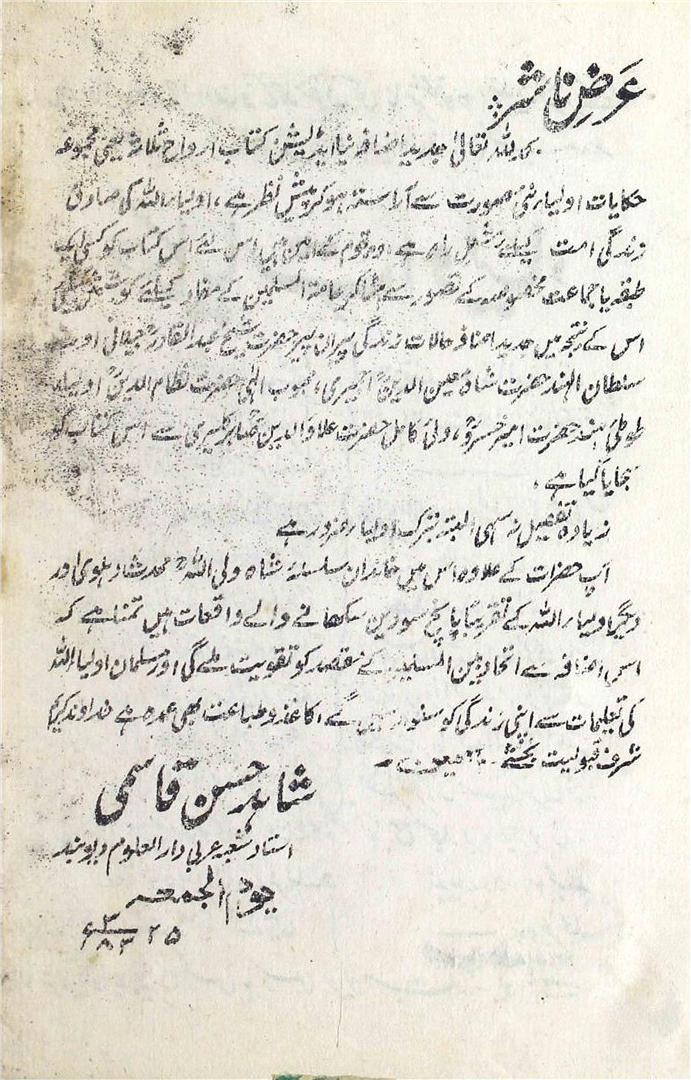 عرضِ ناشر
بحمد للہ تعالیٰ جدید اضافہ نیا ایڈیشن کتاب ارواح ثلاثہ یعنی مجموعہ
حکایات اولیاء نئی صورت سے آراستہ ہو کر پیش نظر ہے، اولیاء اللہ کی صادق
زندگی امت کیلئے مشعل راہ ہے اس لئے اس کتاب کو کسی ایک
طبقہ یا جماعت مخصوصہ کے تصور سے ہٹا کر عامۃ المسلمین کے مفاد کیلئے کوشش کی
اس کے نتیجہ میں جدید اضافہ حالات زندگی پیران پیر حضرت شیخ عبد القادرؒ جیلانی اور
سلطان الہند حضرت شاہ معین الدینؒ اجمیری، محبوب الٰہی حضرت نظام الدینؒ اولیاء
طوطیٔ ہند حضرت امیر خسروؒ، ولی کامل حضرت علاؤ الدین صابر کلیری سے اس کتاب کو
سجایا گیا ہے،
زیادہ تفصیل نہ سہی البتہ تبرک اولیاء ضرور ہے
آپ حضرات کے علاوہ اس میں خاندان سلسلۂ شاہ ولی اللہؒ محدث دہلوی اور
دیگر اولیاء اللہ کے تقریباً پانچ سو دین سکھانے والے واقعات ہیں تمنا ہے کہ
اس اضافہ سے اتحاد بین المسلمین کے مقصد کو تقویت ملے گی اور مسلمان اولیاء اللہ
کی تعلیمات سے اپنی زندگی کو سنواریں گے، کاغذ و طباعت بھی عمدہ ہے خداوند کریم
شرف قبولیت بخشے۔ آمین۔
شاہد حسن قاسمی
استاد شعبہ عربی دار العلوم دیوبند
یوم الجمعہ
۲۵